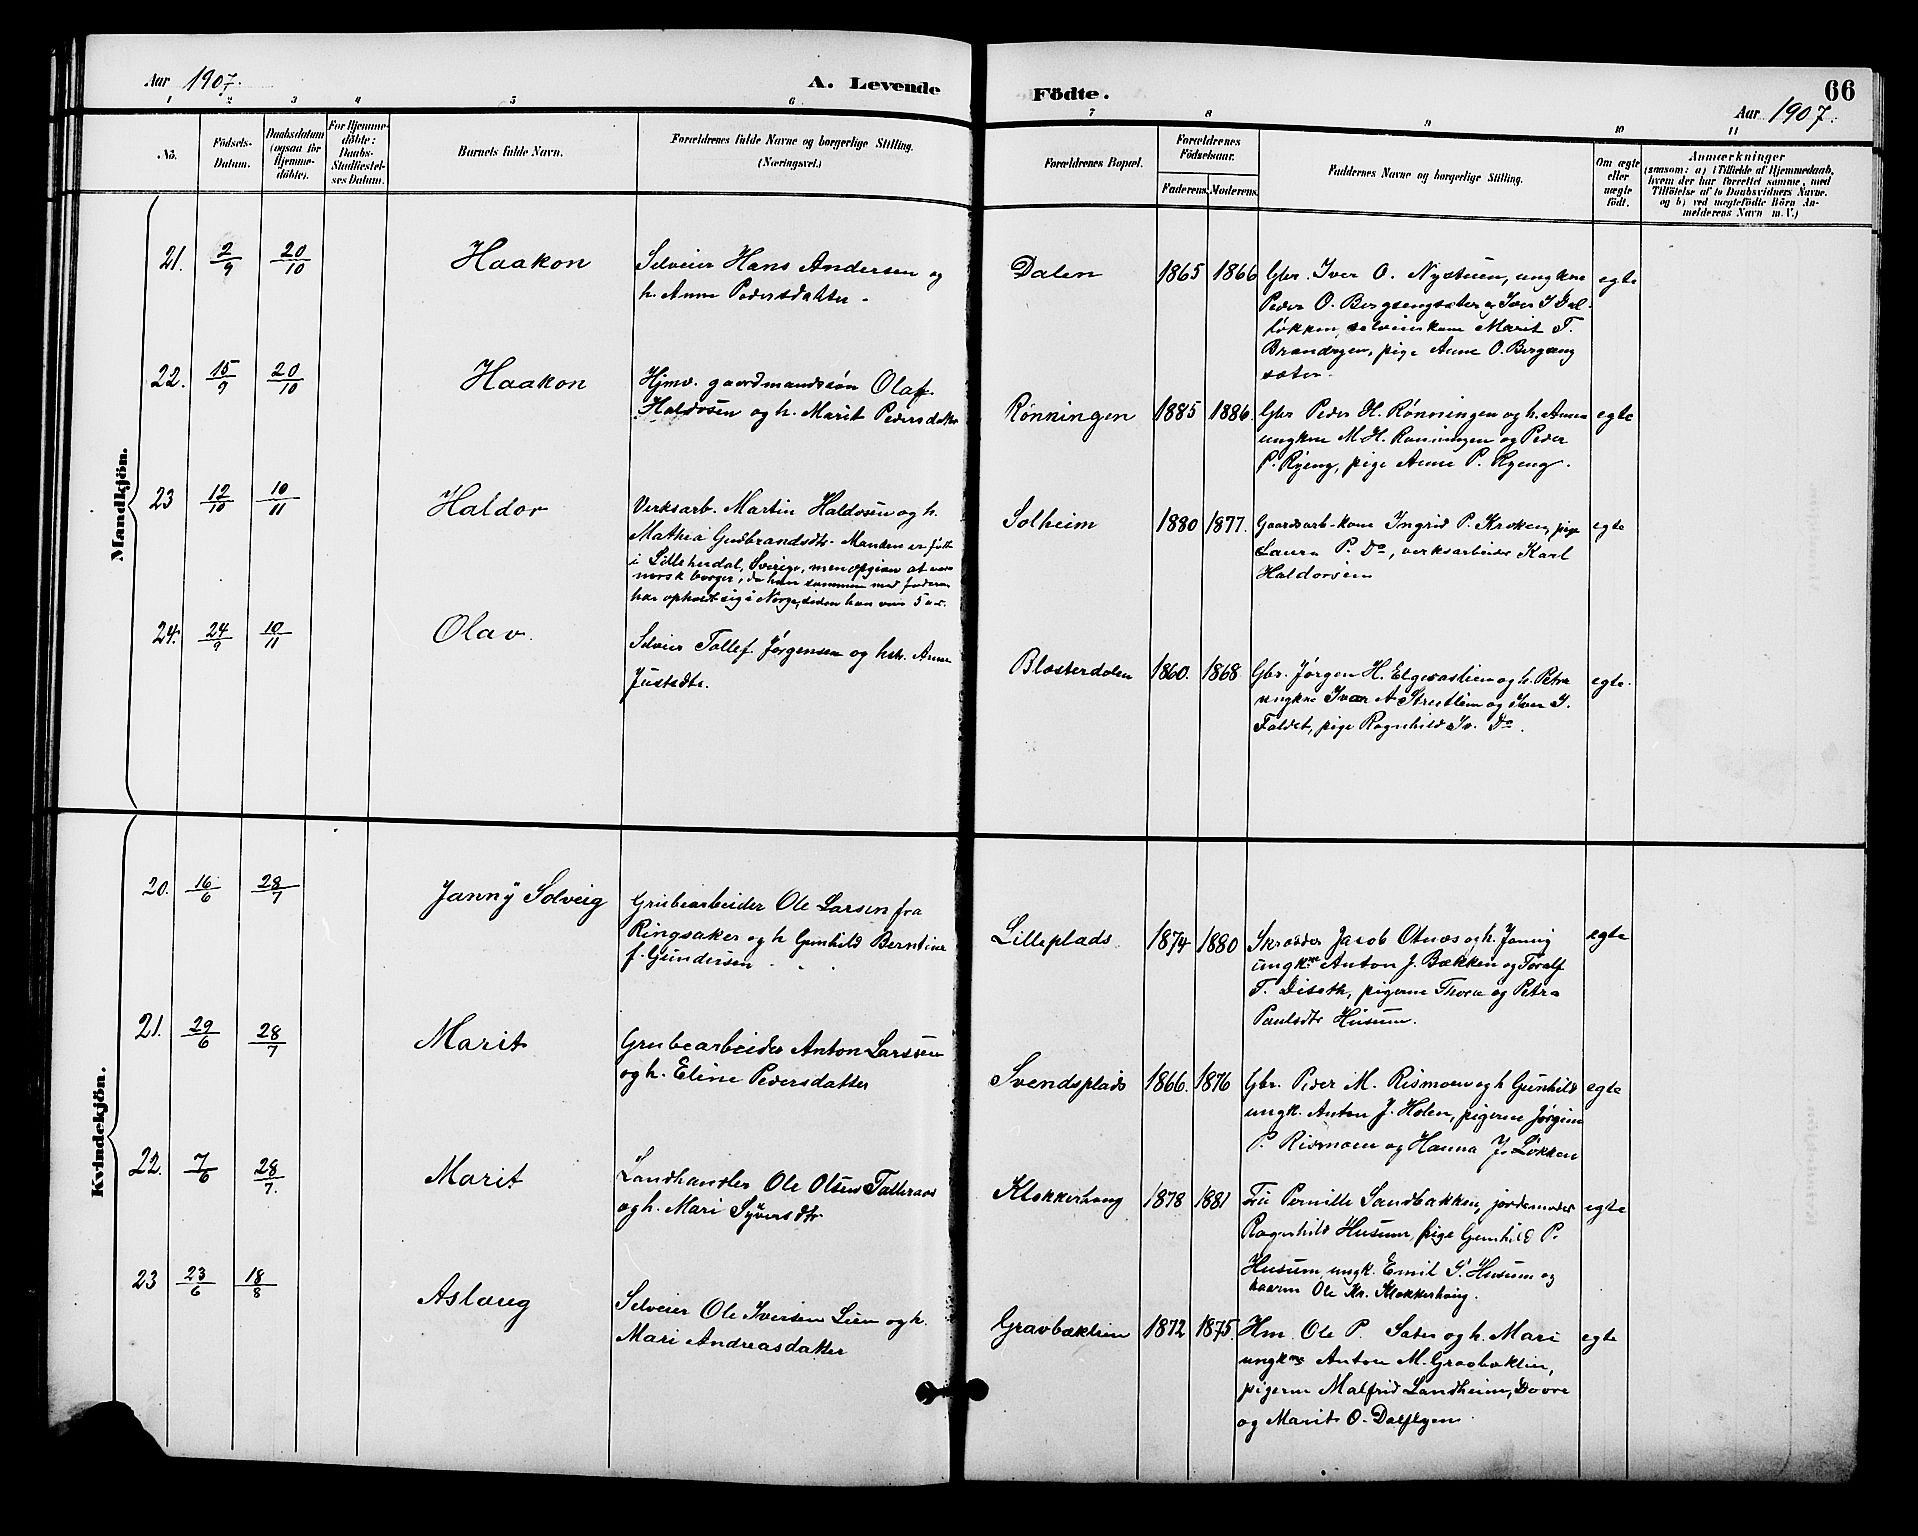 Aar 1907.
A. Levende
Fødte.
66
Aar 1907.
1 2 3 4 5 6 7 8 9 10 11
No.
Fødsels-
Datum.
Daabsdatum
(ogsaa for
Hjemme-
døbte).
For Hjemme-
døbte:
Daabs-
Stadfæstel-
ses Datum.
Barnets fulde Navn.
Forældrenes fulde Navne og borgerlige Stilling.
(Næringsvei.)
Forældrenes Bopæl.
Forældrenes
Fødselsaar.
Faderens. Moderens.
Faddernes Navne og borgerlige Stilling.
Om ægte
eller
uægte
født.
Anmærkninger
(saasom: a) i Tilfælde af Hjemmedaab,
hvem der har forrettet samme, med
Tilføielse af to Daabsvidners Navne.
og b) ved uægtefødte Børn An-
melderens Navn m. V.)
Mandkjön.
21. 2/9 20/10 Haakon
Selveier Hans Andersen og
h. Anne Pedersdatter
Dalen 1865 1866
Gbr. Iver O. Nystuen, ungkne
Peder O. Bergsengsæter og Iver I Dal-
løkken, selveierkone Marit T.
Brændryen, pige Anne O. Bergeng
sæter.
egte
22. 15/9 20/10 Haakon
Hjmv. gaardmandssøn Olaf
Haldosen og h. Marit Pedersdatter
Rønningen 1885 1886.
Gbr Peder H. Rønningen og h. Anne
ungkne M. H. Rønningen og Peder
P. Ryeng, pige Anne P. Ryeng.
egte
23 12/10 10/11 Haldor
Verksarb. Martin Haldosen og h.
Mathea Gudbrandsdtr. Manden er født
i Lilleherdal, Sverige, men opgiver at være
norsk borger, da han sammen med faderen
har opholdt sig i Norge, siden han var 5 aar.
Solheim 1880 1877.
Gaardarb. kone Ingrid P. Kroken, pige
Laura P. Do, verksarbeider Karl
Haldorsen
egte
24. 24/9 10/11 Olav.
Selveier Tollef Jørgensen og hstr. Anne
Justsdtr.
Blæsterdalen 1860. 1868
Gbr. Jørgen H. Elgesaslien og h. Petra
ungkne Ivar A Strætlien og Iver I.
Faldet, pige Ragnhild Iv. Do.
egte.
Kvindekjön.
20. 16/6 28/7 Janny Solveig
Grubearbeider Ole Larsen fra
Ringsaker og h Gunhild Berntine
f. Gundersen
Lilleplads 1874 1880
Skræder Jacob Otnæs og h. Janny
ungkne Anton J. Bækken og Toralf
T. Diseth, pigerne Thora og Petra
Paulsdtr Husum.
egte
21. 29/6 28/7 Marit
Grubearbeider Anton Larssen
og h. Eline Pedersdatter
Svendsplads 1866. 1876
Gbr. Peder M. Rismoen og h Gunhild
ungk. Anton J. Holen, pigerne Jørgine
P. Rismoen og Hanna J. Løkken
egte
22. 7/6 28/7. Marit
Landhandler Ole Olsen Talleraas
og h. Mari Syversdtr
Klokkerhaug 1878 1881
Fru Pernille Sandbakken, jordemoder
Ragnhild Husum, pige Gunhild P.
Husum, ungk. Emil S. Husum og
Ole Kr. Klokkerhaug.
egte
23 23/6 18/8 Aslaug
Selveier Ole Iversen Lien og h.
Mari Andreasdatter
Gravbæklien 1872 1875.
Hm. Ole P. Sæter og h. Mari
ungkne Anton M. Gravbæklien,
pigerne Malfrid Landheim, Dovre
og Marit O. Dalflyen.
egte